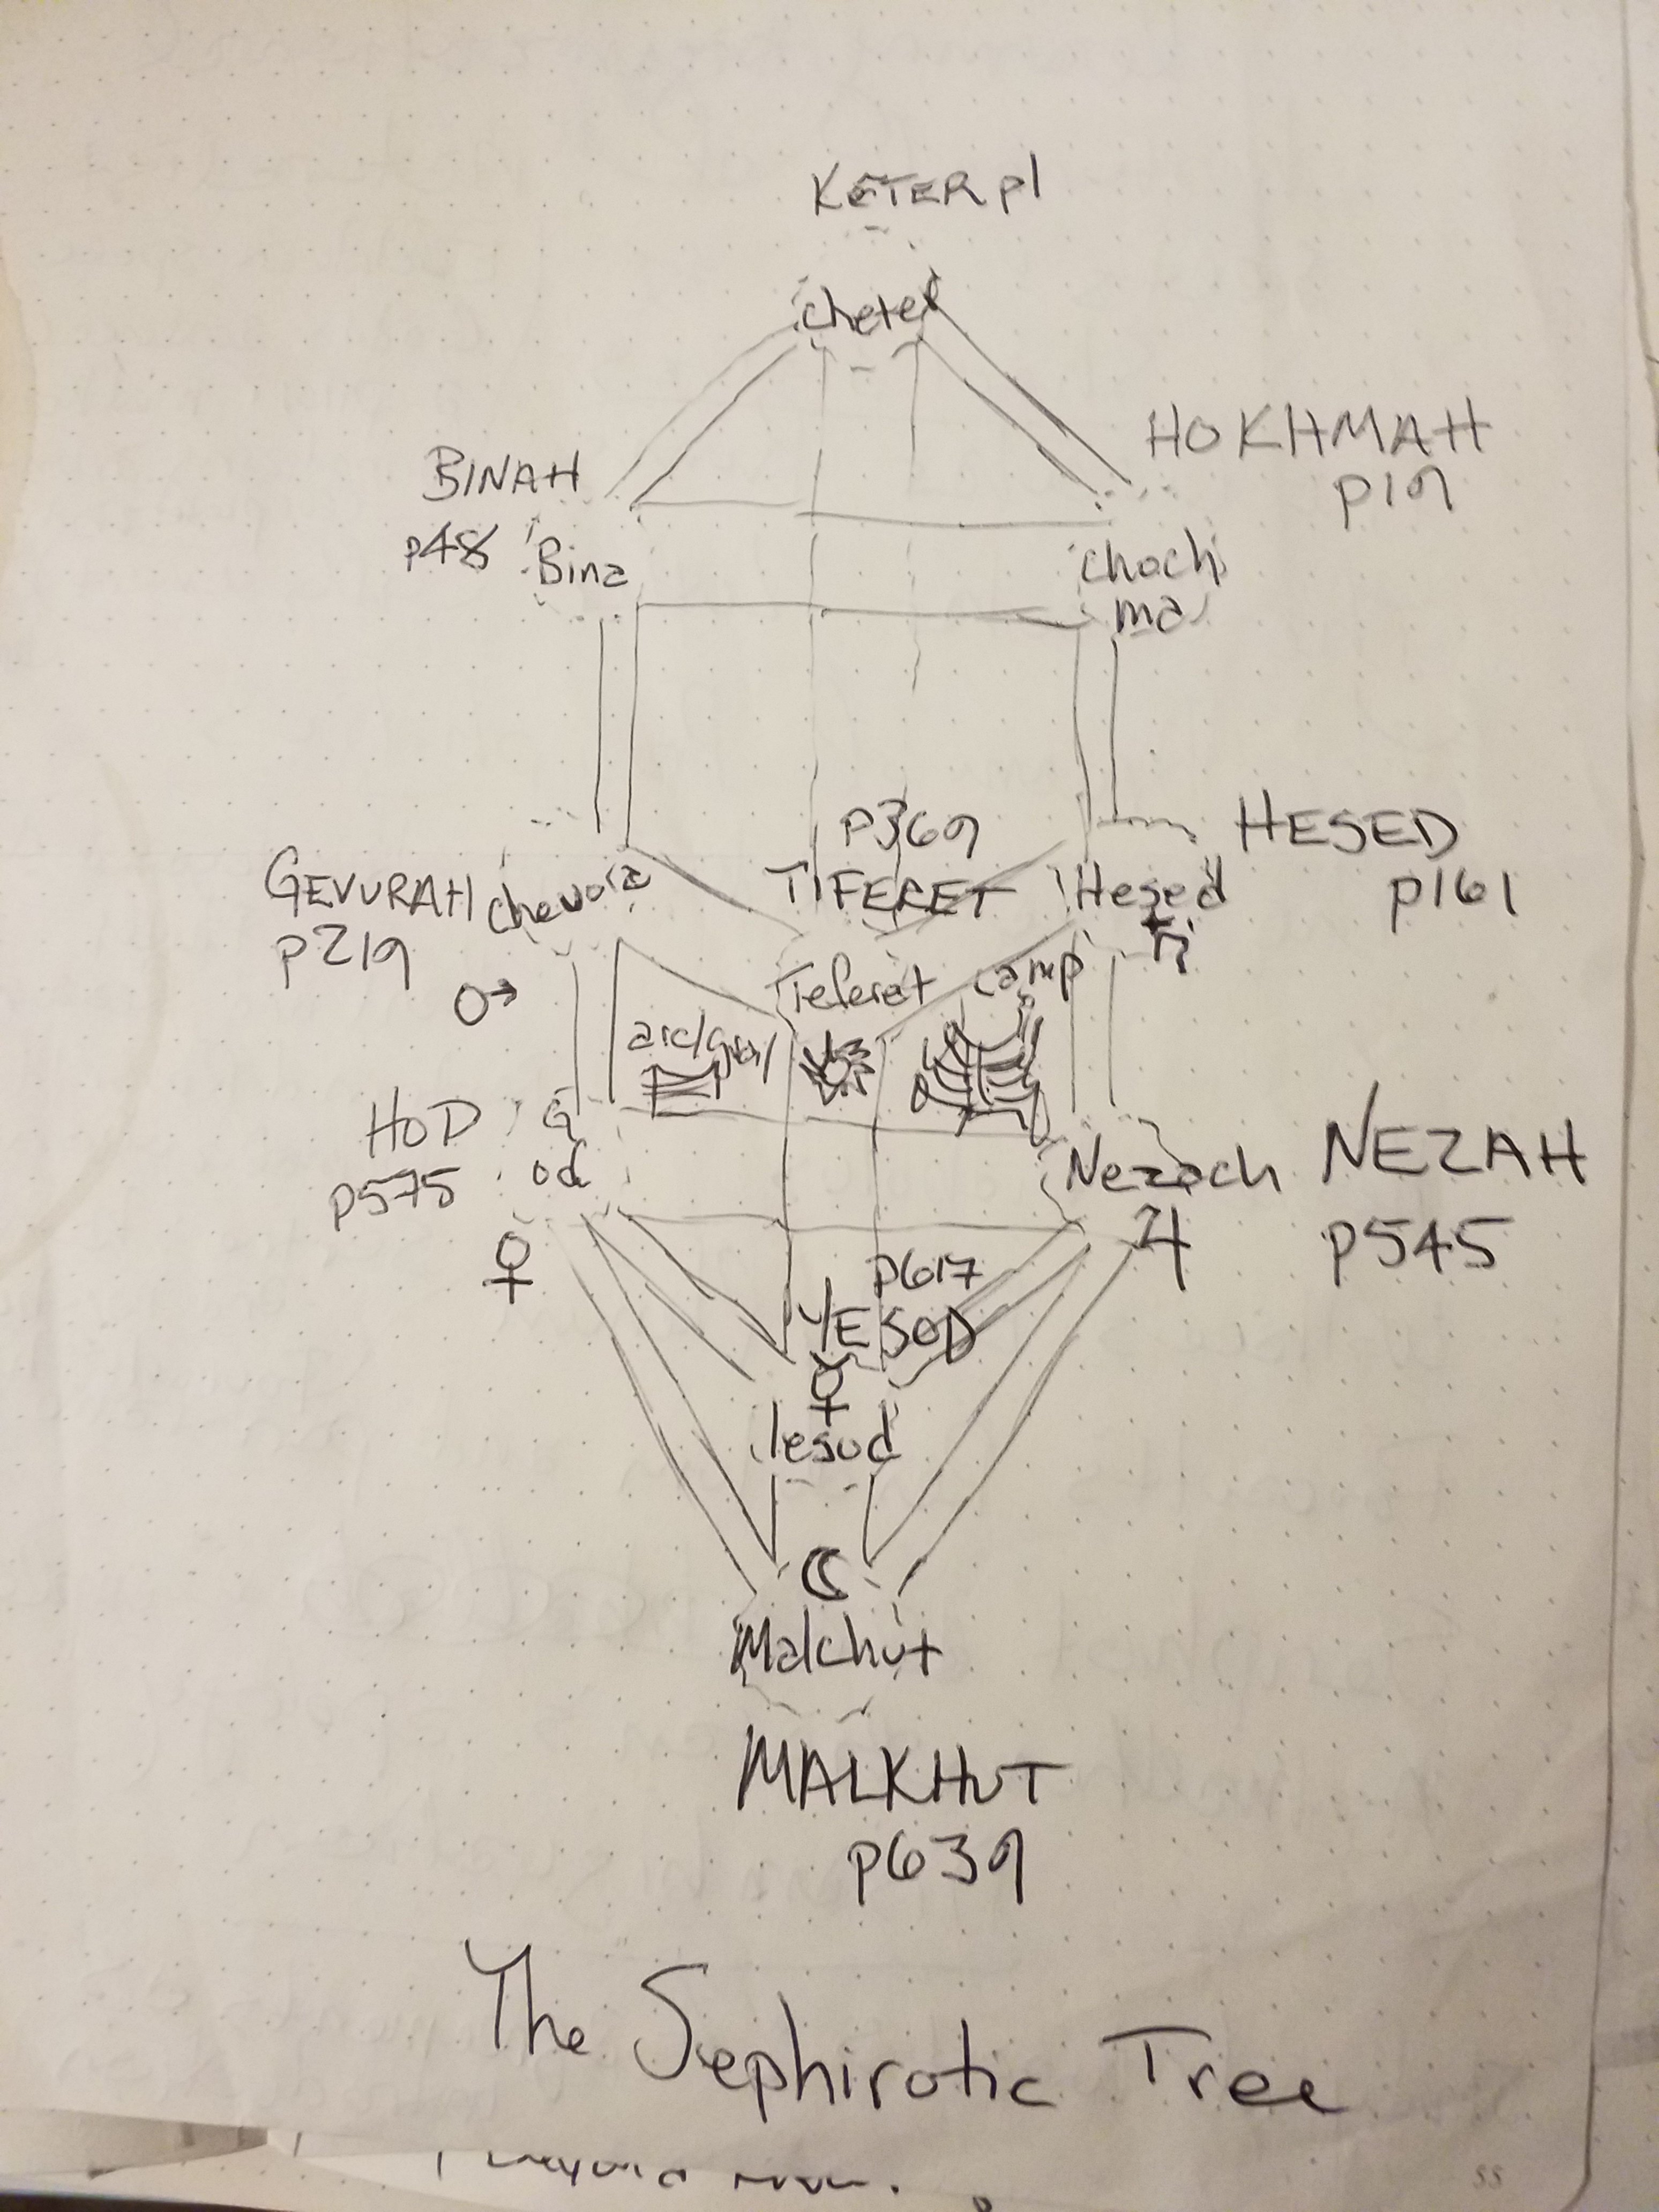 KETER p1
cheter
HOKHMAH
p19
BINAH
p48
Bina
choch
ma
P369
TIFERET
HESED
p161
Hesed
GEVURAH
p219
chevora
Teferet
camp
HOD
p575
od
Nezach
♃
NEZAH
p545
♀
p617
YESOD
☿
Iesod
☾
Malchut
MALKHUT
p639
The Sephirotic Tree
55